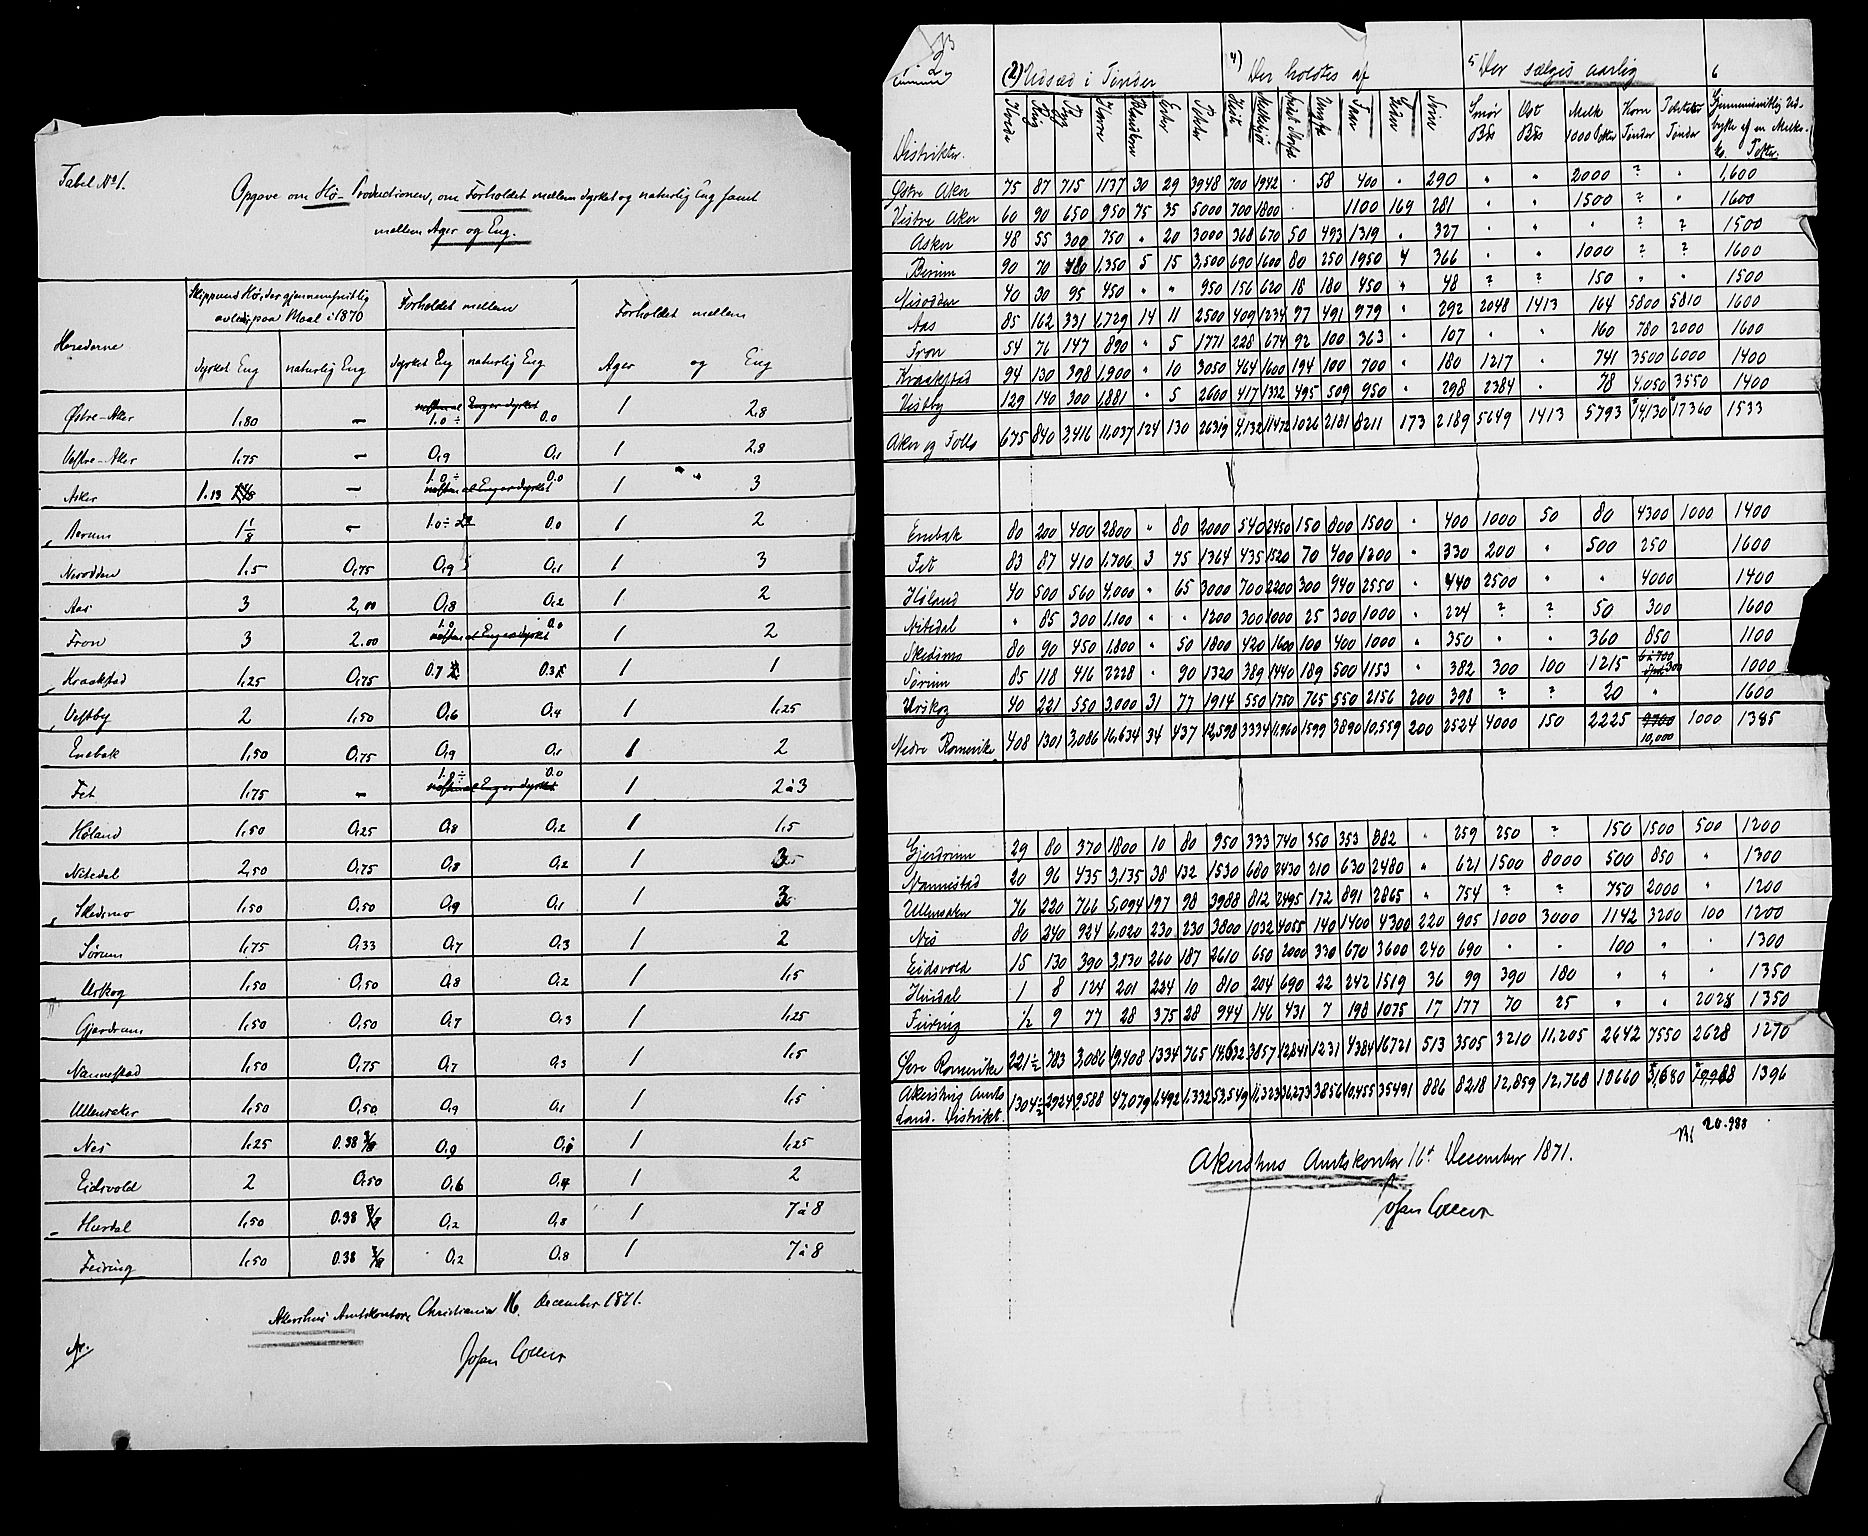 Tabel No 1.
Opgave om Hø-Productionen, om Forholdet mellem dyrket og naturlig Eng samt
mellem Ager og Eng.
Herederne
Skippund Hø, der gjennemsnitlig
avledes paa Maal i 1870
Forholdet mellem
Forholdet mellem
dyrket Eng naturlig Eng dyrket Eng naturlig Eng Ager og Eng
Østre-Aker 1.80 — 1.0 ÷ 0.0 1 2,8
Vestre-Aker 1,75 — 0,9 0,1 1 2,8
Asker 1.13 — 1.0 ÷ 0.0 1 3
Bærum 1 1/8 — 1.0 ÷ 0.0 1 2
Nesodden 1,5 0,75 0,9 0,1 1 3
Aas 3 2,00 0,8 0,2 1 2
Fron 3 2.00 1.0 0.0 1 2
Kraakstad 1,25 0,75 0.7 0.3 1 1
Vestby 2 1,50 0,6 0,4 1 1,25
Enebak 1,50 0,75 0,9 0,1 1 2
Fet 1,75 — 1.0 ÷ 0.0 1 2 à 3
Høland 1,50 0,25 0,8 0,2 1 1,5
Nitedal 2,50 0,75 0,8 0,2 1 3
Skedsmo 1,50 0,50 0,9 0,1 1 3
Sørum 1,75 0,33 0,7 0,3 1 2
Urskog 1,50 0,50 0,8 0,2 1 1,5
Gjerdrum 1,50 0,50 0,7 0,3 1 1,25
Nannestad 1,50 0,75 0,7 0,3 1 1,5
Ullensaker 1,50 0,50 0,9 0,1 1 1,5
Nes 1,25 0.38 3/8 0,9 0,1 1 1,25
Eidsvold 2 0,50 0,6 0,4 1 2
Hurdal 1,50 0.38 3/8 0,2 0,8 1 7 à 8
Feiring 1,50 0.38 3/8 0,2 0,8 1 7 à 8
Akershus Amtskontor, Christiania 16 December 1871.
Johan Collett
2
(2) Udsæd i Tønder 4) Der holdtes af 5 Der sælges aarlig 6
Distrikter. Hvede Rug Byg Havre Blandkorn Erter Poteter Heste Melkekjør Ungfæ Faar Geder Svin Smør Ost Melk 1000 Potter Korn Tønder Poteter Tønder Gjennemsnitlig Udbytte af en Melkeko. Potter.
Østre Aker 75 87 715 1137 30 29 3948 700 1942 · 58 400 " 290 " " 2000 ? " 1,600
Vestre Aker 60 90 650 950 75 35 5000 700 1800 · 1100 169 281 " " 1500 ? " 1600
Asker 48 55 300 750 " 20 3000 368 670 50 493 1319 " 327 " " " ? ? 1500
Berum 90 70 780 1,350 5 15 3,500 690 1600 80 250 1950 4 366 " " 1000 ? ? 1600
Nesodden 40 30 95 450 " " 950 156 620 18 180 450 " 48 ? ? 150 " " 1500
Aas 85 162 331 1,729 14 11 2500 409 1234 77 491 979 " 292 2048 1413 164 5800 5810 1600
Fron 54 76 147 890 " 5 1771 228 674 92 100 363 " 107 " " 160 780 2000 1600
Kraakstad 94 130 398 1,900 " 10 3050 464 1600 194 100 700 " 180 1217 " 741 3500 6000 1400
Vestby 129 140 300 1,881 " 5 2600 417 1332 495 509 950 " 298 2384 " 78 4,050 3550 1400
Aker og Follo 675 840 3416 11,037 124 130 26319 4,132 11472 1026 2181 8211 173 2189 5649 1413 5793 14,130 17360 1533
Enebak 80 200 400 2800 " 80 2000 540 2450 150 800 1500 " 400 1000 50 80 4300 1000 1400
Fet 83 87 410 1,706 3 75 1364 435 1520 70 400 1200 " 330 200 " 500 250 1600
Høland 40 500 560 4,000 " 65 3000 700 2200 300 940 2550 " 440 2500 " " 4000 1400
Nitedal " 85 300 1,100 " " 1200 300 1000 25 300 1000 " 224 ? ? 50 300 1600
Skedsmo 80 90 450 1,800 " 50 1800 420 1600 100 400 1000 " 350 " " 360 850 1100
Sørum 85 118 416 2228 " 90 1320 389 1440 189 500 1153 " 382 300 100 1215 6 à 700 300 1000
Urskog 40 221 550 3,000 31 77 1914 550 1750 765 550 2156 200 398 ? ? 20 " 1600
Nedre Romerike 408 1301 3,086 16,634 34 437 12,598 3334 11,960 1599 3890 10,559 200 2524 4000 150 2225 9700 10,000 1000 1385
Gjerdrum 29 80 370 1800 10 80 950 333 740 350 353 882 " 259 250 ? 150 1500 500 1200
Nannestad 20 96 435 3,135 38 132 1530 680 2430 210 630 2480 " 621 1500 8000 500 850 " 1300
Ullensaker 76 220 766 5,094 197 98 3988 812 2495 172 891 2865 " 754 ? ? 750 2000 " 1200
Nes 80 240 924 6,020 230 230 3800 1032 4055 140 1400 4300 220 905 1000 3000 1142 3200 100 1200
Eidsvold 15 130 390 3,130 260 187 2610 650 2000 330 670 3600 240 690 " " 100 " " 1300
Hurdal 1 8 124 201 224 10 810 204 690 22 242 1519 36 99 390 180 " " " 1350
Feiring 1/2 9 77 28 375 28 944 146 431 7 198 1075 17 177 70 25 " " 2028 1350
Øvre Romerike 221 1/2 783 3,086 19,408 1334 765 14,632 3857 12,841 1231 4384 16721 513 3505 3210 11,205 2642 7550 2628 1270
Akershus Amts
Land. Distrikt. 1304 1/2 2924 9,588 47,079 1,492 1,332 53,549 11,323 36,273 3856 10,455 35491 886 8218 12,859 12,768 10660 31,680 19,988 1396
NB 20.988
Akershus Amtskontor 16de December 1871.
Johan Collett